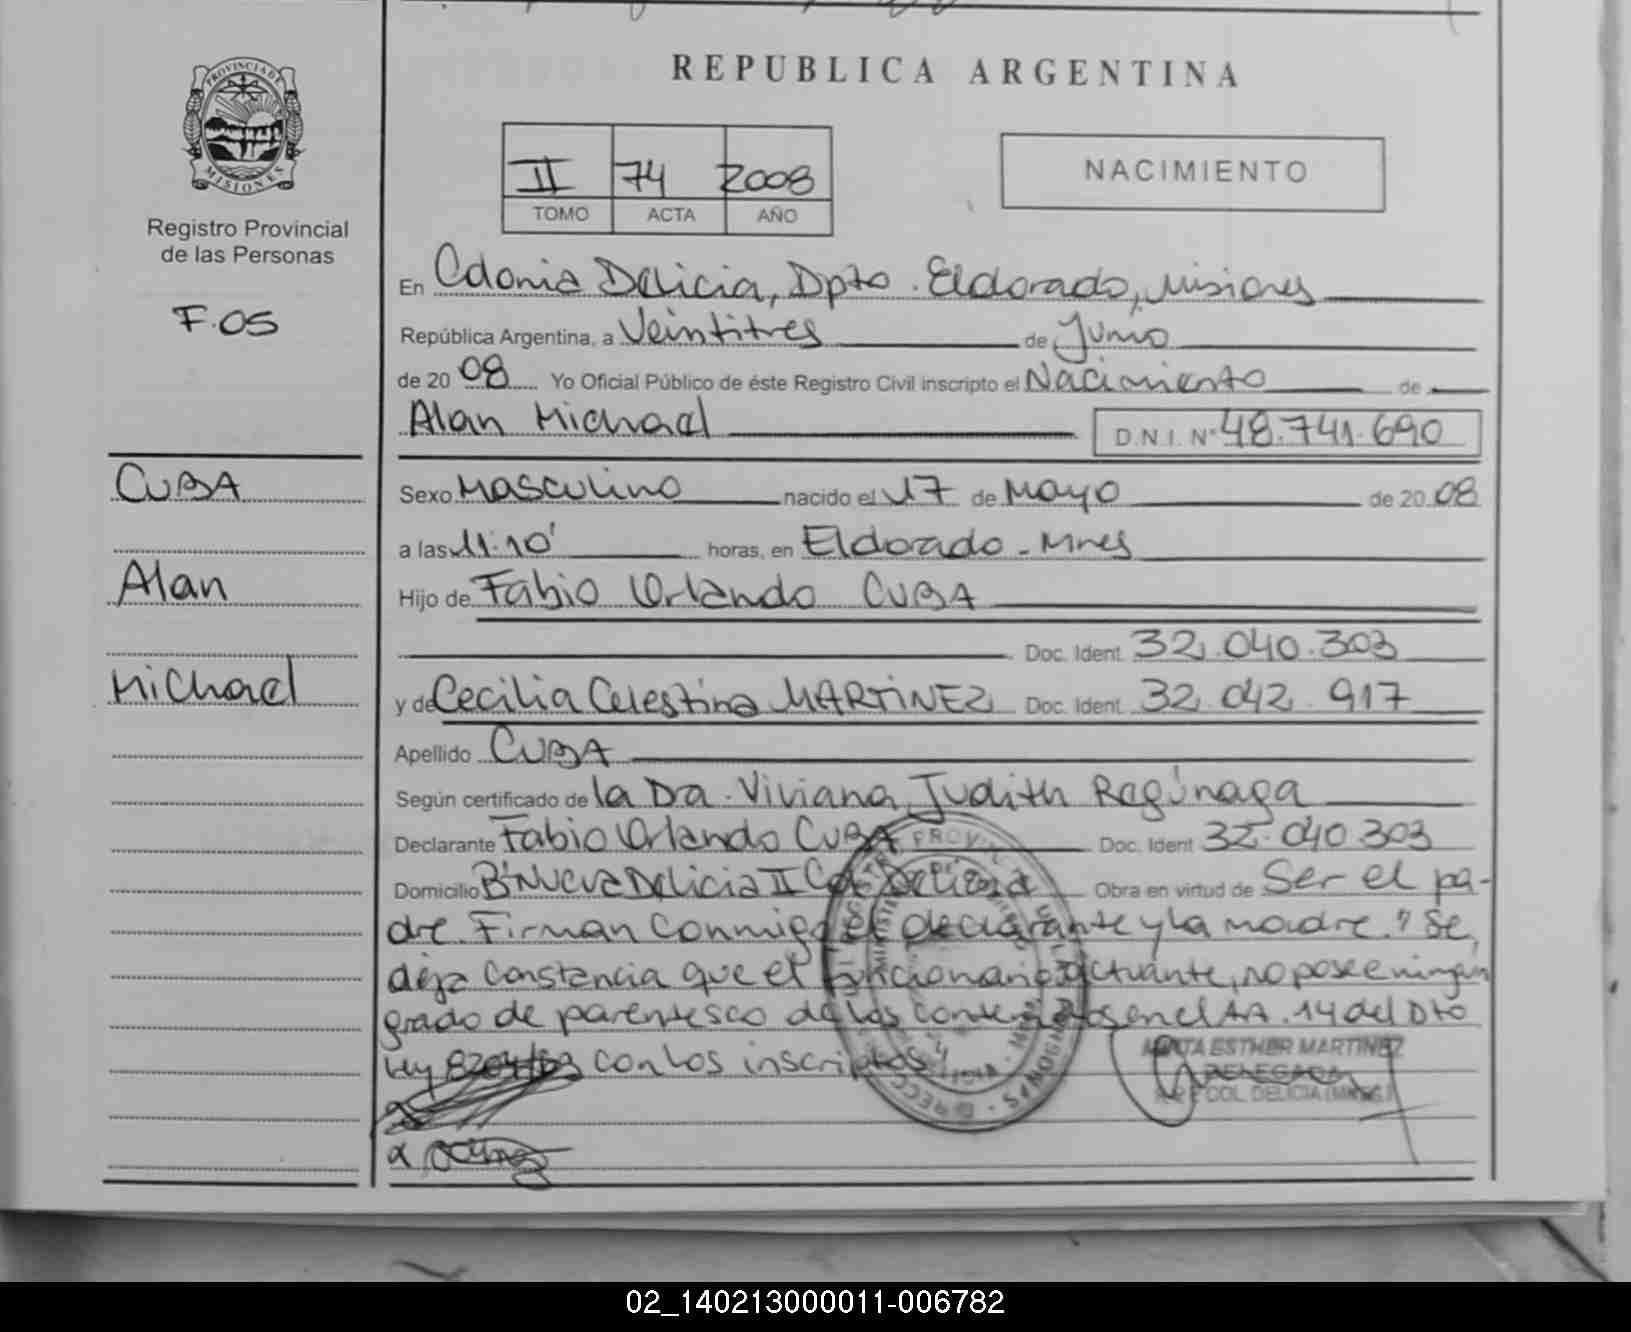 REPUBLICA ARGENTINA
PROVINCIA DE
MISIONES
Registro Provincial
de las Personas
F.05
II 74 2008
TOMO ACTA AÑO
NACIMIENTO
En Colonia Delicia, Dpto. Eldorado, Misiones
República Argentina, a Veintitres de Junio
de 20 08 Yo Oficial Público de éste Registro Civil inscripto el Nacimiento de
Alan Michael D.N.I. N° 48.741.690
CUBA
Alan
Michael
Sexo Masculino nacido el 17 de Mayo de 20 08
a las 11:10' horas, en Eldorado - Mnes
Hijo de Fabio Orlando CUBA
Doc. Ident. 32.040.303
y de Cecilia Celestina MARTINEZ Doc. Ident. 32.042.917
Apellido CUBA
Según certificado de la Dra. Viviana Judith Regúnaga
Declarante Fabio Orlando CUBA Doc. Ident. 32.040.303
Domicilio Bº Nueva Delicia II Col. Delicia Obra en virtud de Ser el pa-
dre. Firman conmigo el declarante y la madre. "Se
deja constancia que el funcionario actuante, no posee ningún
grado de parentesco de los contemplados en el Art. 14 del Dto
Ley 8204/63 con los inscriptos"
ESTHER MARTINEZ
DELEGADA
COL. DELICIA
02_140213000011-006782